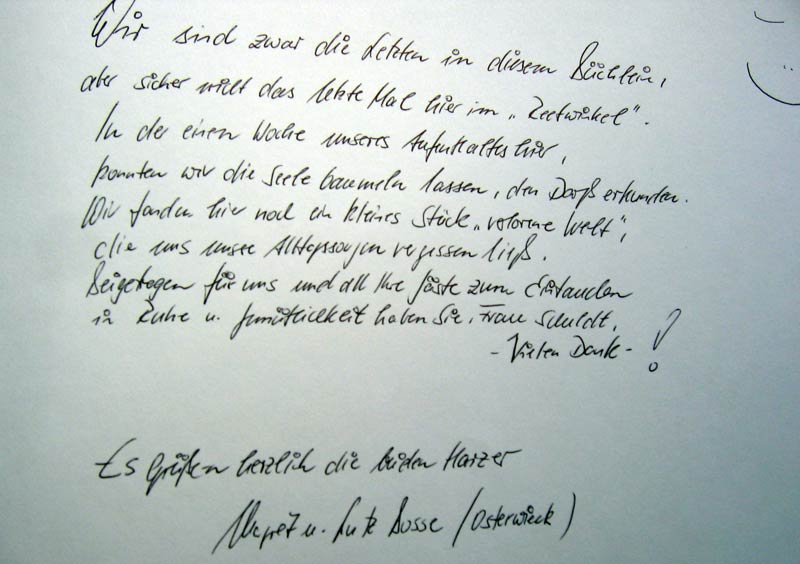 Wir sind zwar die Letzten in diesem Büchlein,
aber sicher nicht das letzte Mal hier im „Reetwinkel".
In der einen Woche unseres Aufenthaltes hier,
konnten wir die Seele baumeln lassen, den Darß erkunden.
Wir fanden hier noch ein kleines Stück „verlorene Welt",
die uns unsere Alltagssorgen vergessen ließ.
Beigetragen für uns und all Ihre Gäste zum Eintauchen
in Ruhe u. Gemütlichkeit haben Sie, Frau Schuldt.
- Vielen Dank - !
Es grüßen herzlich die beiden Harzer
u. Lutz Bosse (Osterwieck)